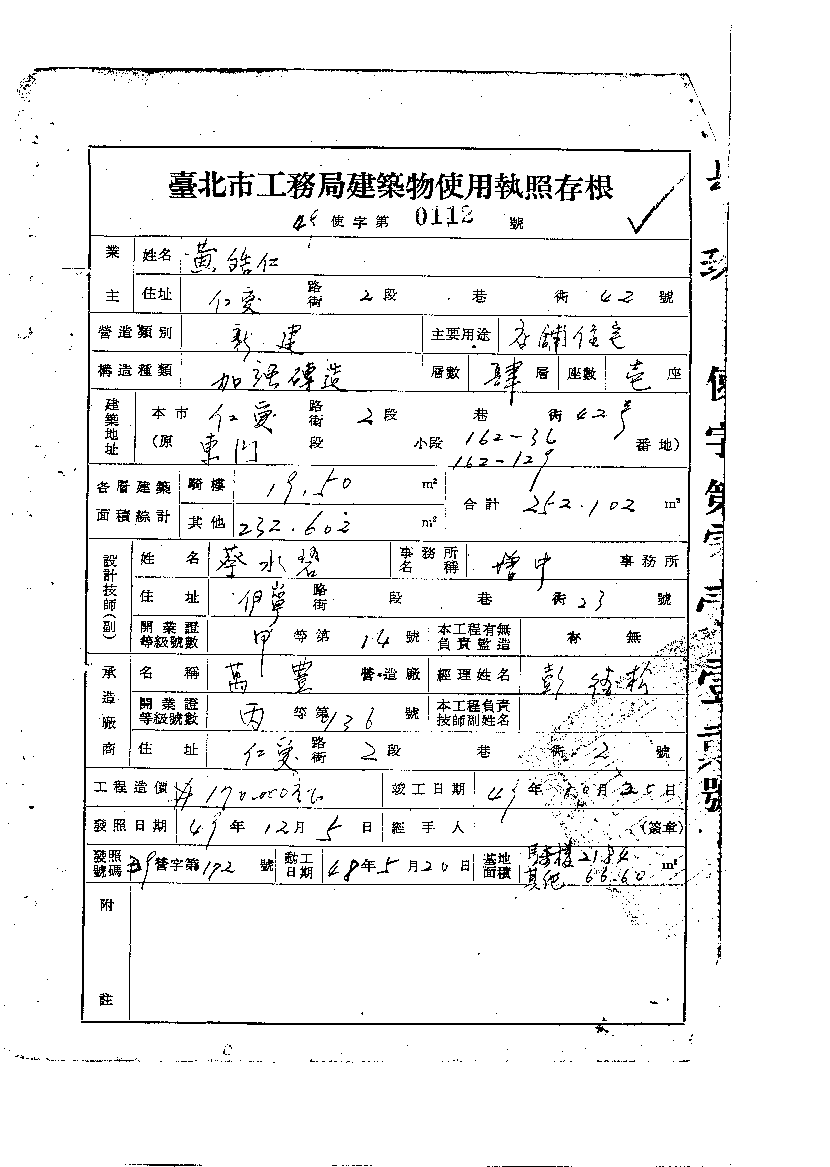 臺北市工務局建築物使用執照存根
49 使字第 0112 號
業主 姓名 黃皓仁
住址 仁愛 路街 2 段 巷 衖 42 號
營造類別 新建 主要用途 店鋪住宅
構造種類 加強磚造 層數 肆 層 座數 壱 座
建築地址 本市 仁愛 路街 2 段 巷 衖 42号
(原 東門 段 小段 162-36 162-129 番地)
各層建築面積綜計 騎樓 19.50 m² 合計 252.102 m²
其他 232.602 m²
設計技師(副) 姓名 蔡水 事務所名稱 增中 事務所
住址 伊寧 路街 段 巷 衖 23 號
開業證等級號數 甲 等第 14 號 本工程有無負責監造 有 無
承造廠商 名稱 萬豊 營造廠 經理姓名 彭 松
開業證等級號數 丙 等第 136 號 本工程負責技師副姓名
住址 仁愛 路街 2 段 巷 衖 2 號
工程造價 #170,000元 竣工日期 49 年 10 月 20 日
發照日期 49 年 12 月 5 日 經手人 (簽章)
發照號碼 營字第 172 號 動工日期 48 年 5 月 20 日 基地面積 騎樓 21.84 其他 66.60 m²
附註
使字第零壹壹貳號